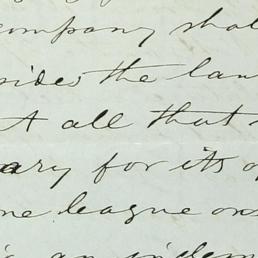 company shal
sides the law
t all that
ary for its o
ne league on
is an indem